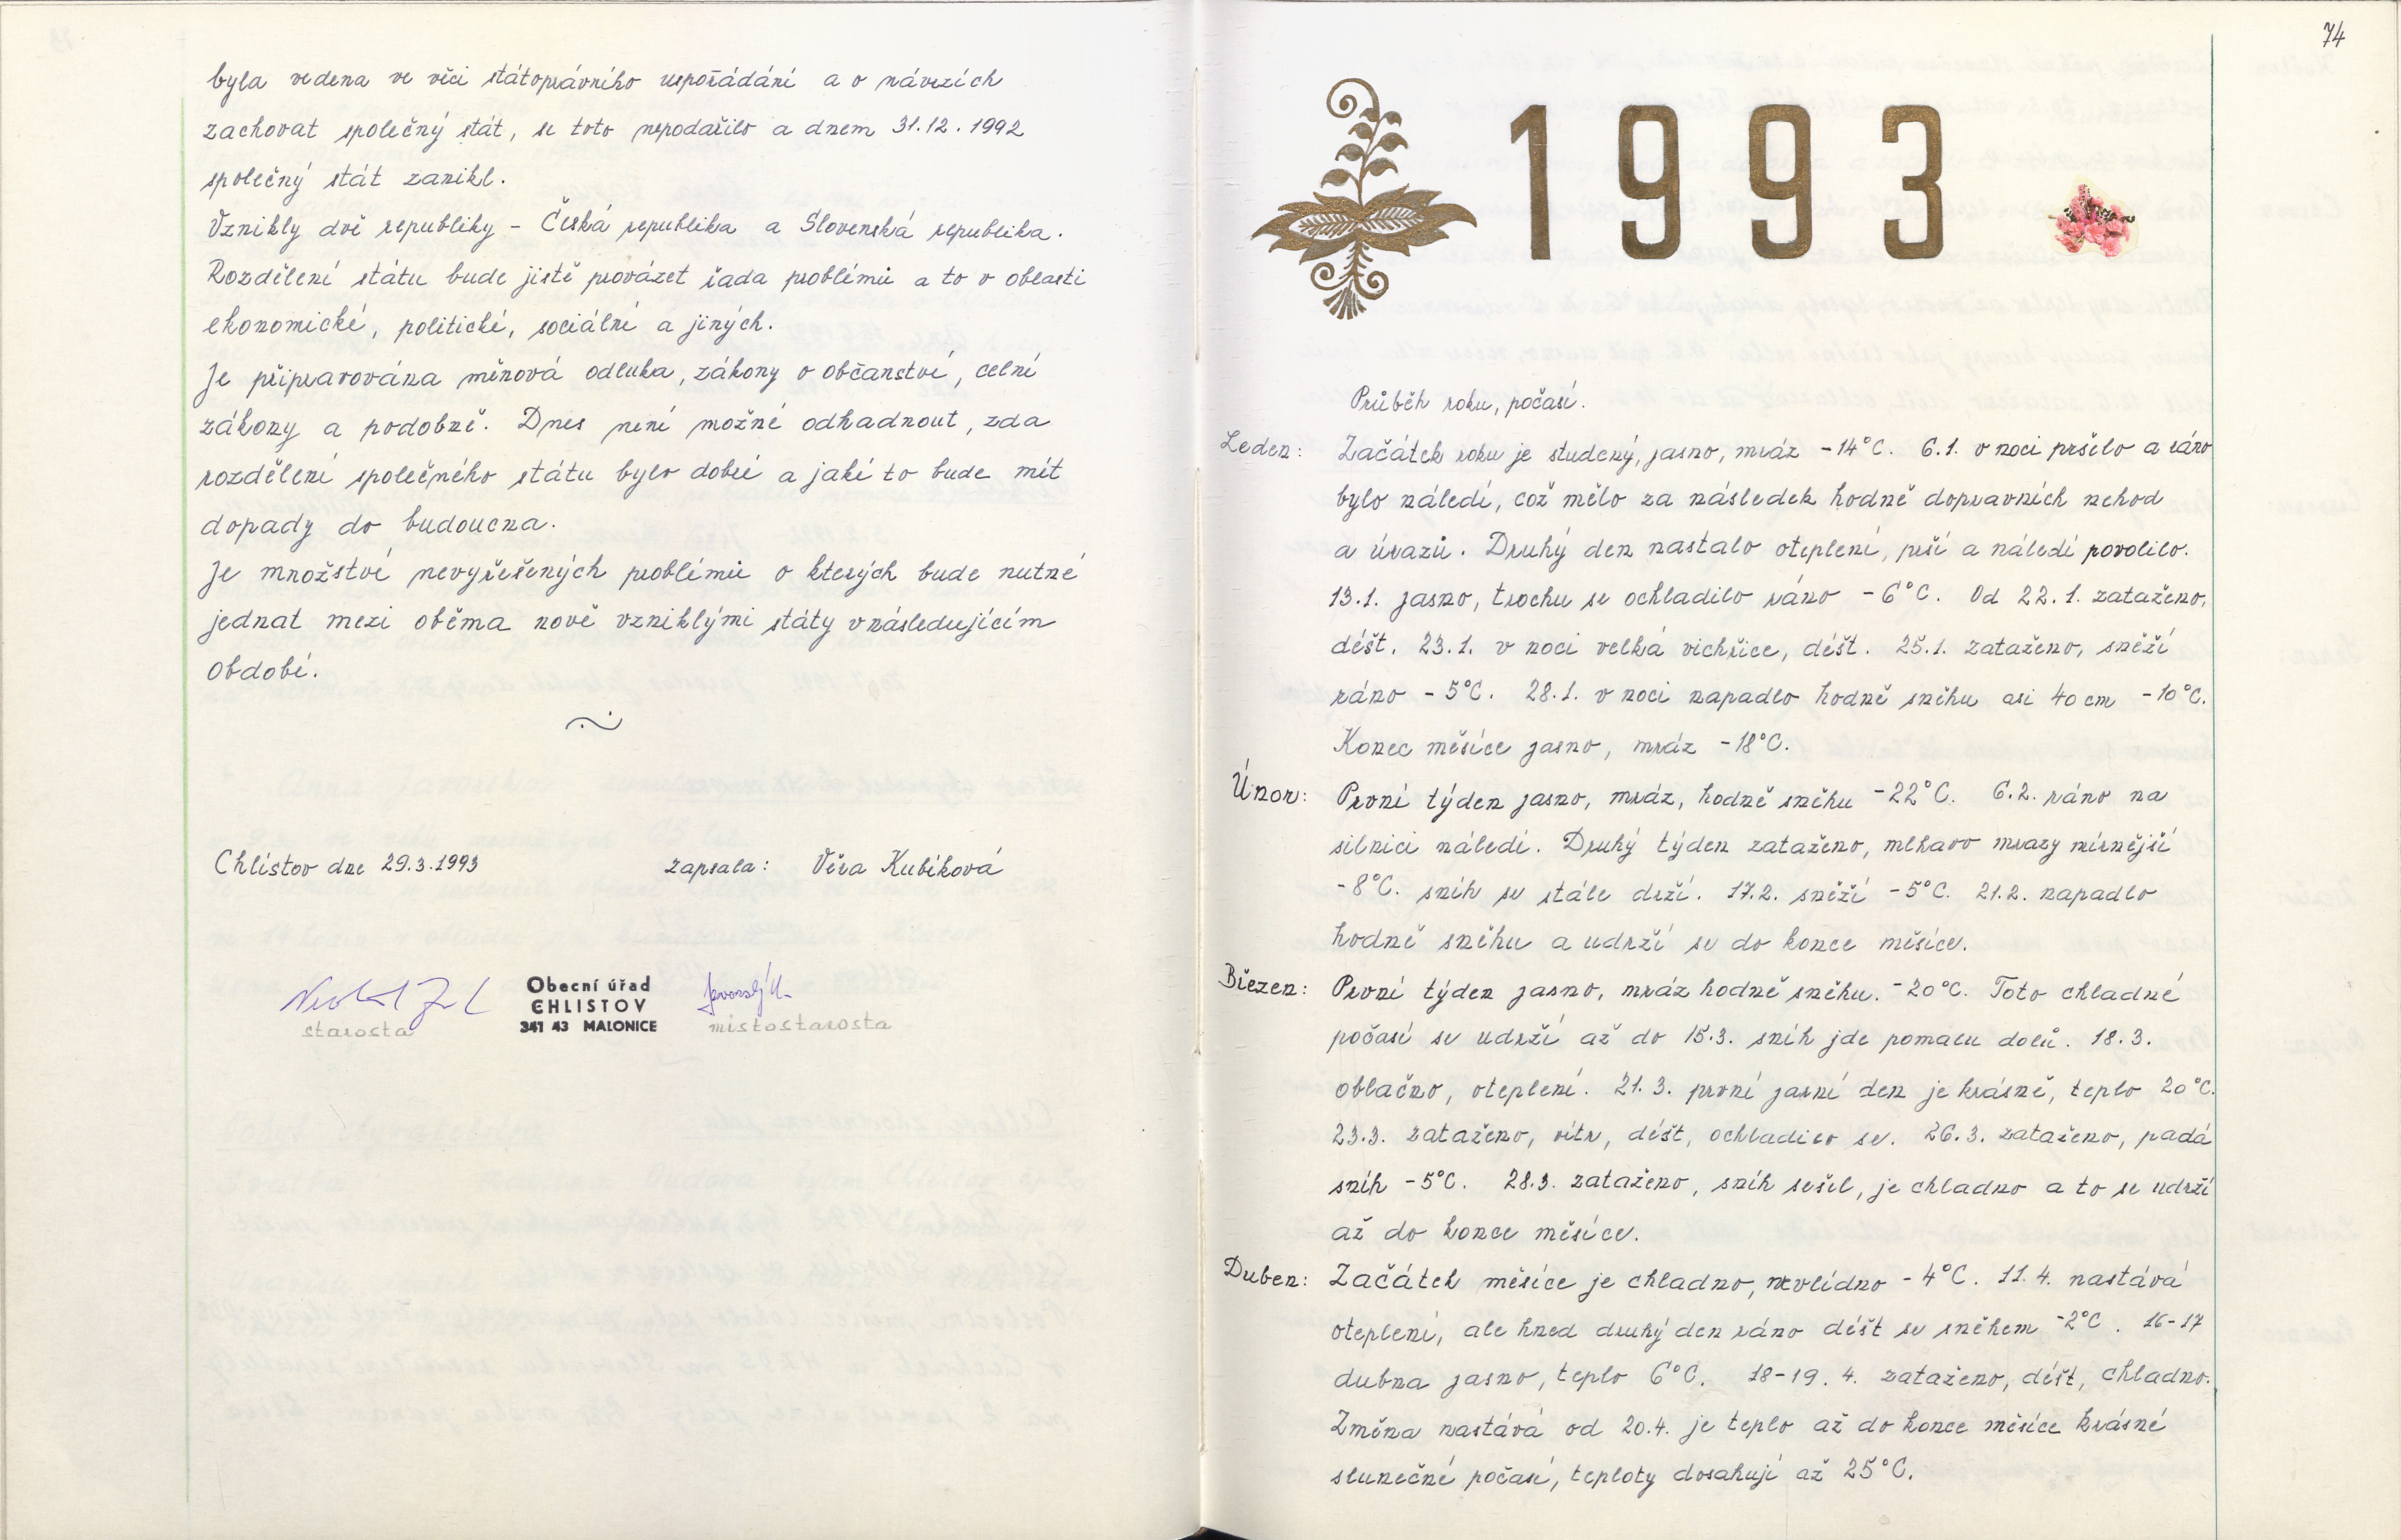 byla vedena ve věci státoprávního uspořádání a o návrzích
zachovat společný stát, se toto nepodařilo a dnem 31.12.1992
společný stát zanikl.
Vznikly dvě republiky - Česká republika a Slovenská republika.
Rozdělení státu bude jistě provázet řada problémů a to v oblasti
ekonomické, politické, sociální a jiných.
Je připravována měnová odluka, zákony o občanství, celní
zákony a podobně. Dnes není možné odhadnout, zda
rozdělení společného státu bylo dobré a jaké to bude mít
dopady do budoucna.
Je množství nevyřešených problémů o kterých bude nutné
jednat mezi oběma nově vzniklými státy v následujícím
období.
Chlistov dne 29.3.1993 zapsala: Věra Kubíková
Obecní úřad
CHLISTOV
341 43 MALONICE
starosta místostarosta
74
1993
Průběh roku, počasí.
Leden: Začátek roku je studený, jasno, mráz -14°C. 6.1. v noci pršelo a ráno
bylo náledí, což mělo za následek hodně dopravních nehod
a úrazů. Druhý den nastalo oteplení, prší a náledí povolilo.
13.1. jasno, trochu se ochladilo ráno -6°C. Od 22.1. zataženo,
déšt. 23.1. v noci velká vichřice, déšt. 25.1. zataženo, sněží
ráno -5°C. 28.1. v noci napadlo hodně sněhu asi 40 cm -10°C.
Konec měsíce jasno, mráz -18°C.
Únor: První týden jasno, mráz, hodně sněhu -22°C. 6.2. ráno na
silnici náledí. Druhý týden zataženo, mlhavo mrazy mírnější
-8°C. sníh se stále drží. 17.2. sněží -5°C. 21.2. napadlo
hodně sněhu a udrží se do konce měsíce.
Březen: První týden jasno, mráz hodně sněhu. -20°C. Toto chladné
počasí se udrží až do 15.3. sníh jde pomalu dolů. 18.3.
oblačno, oteplení. 21.3. první jarní den je krásně, teplo 20°C.
23.3. zataženo, vítr, déšt, ochladilo se. 26.3. zataženo, padá
sníh -5°C. 28.3. zataženo, sníh sešel, je chladno a to se udrží
až do konce měsíce.
Duben: Začátek měsíce je chladno, nevlídno -4°C. 11.4. nastává
oteplení, ale hned druhý den ráno déšt se sněhem -2°C. 16-17
dubna jasno, teplo 6°C. 18-19.4. zataženo, déšt, chladno.
Změna nastává od 20.4. je teplo až do konce měsíce krásné
slunečné počasí, teploty dosahují až 25°C.